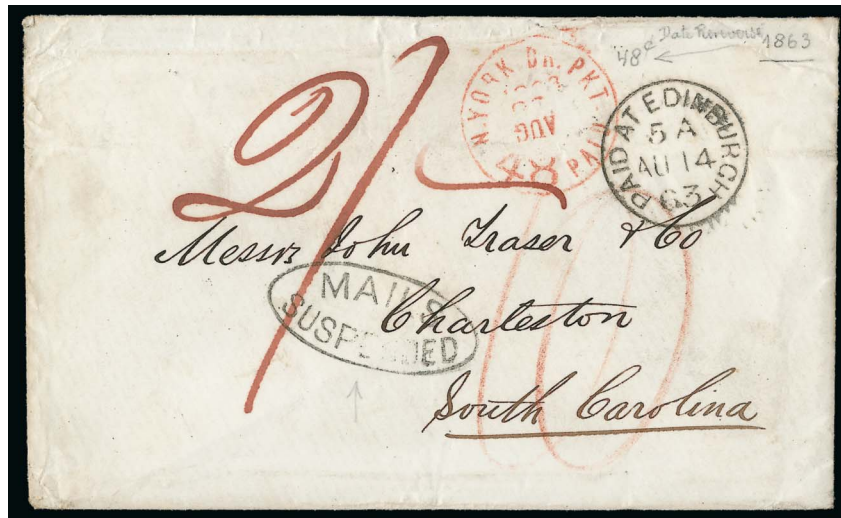 48c Date Reverse 1863
2/-
N.YORK BR. PKT. PAID
AUG
48
PAID AT EDINBURGH
5 A
AU 14
63
10
Messrs John Fraser & Co
MAILS
SUSPENDED
Charleston
South Carolina